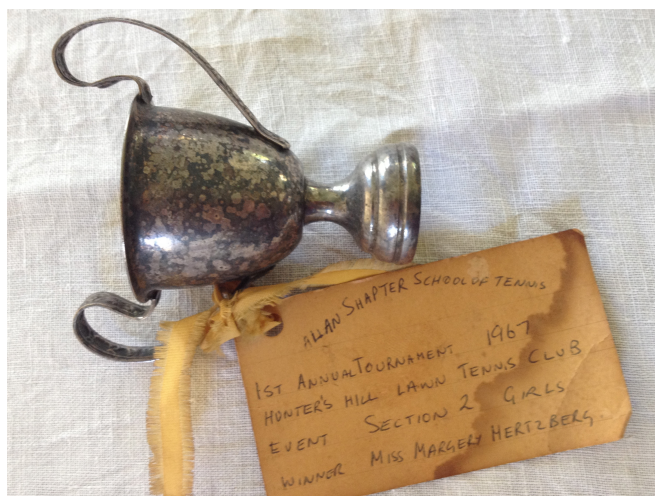 ALLAN SHAPTER SCHOOL OF TENNIS
1ST ANNUAL TOURNAMENT 1967
HUNTER'S HILL LAWN TENNIS CLUB
EVENT SECTION 2 GIRLS
WINNER MISS MARGERY HERTZBERG